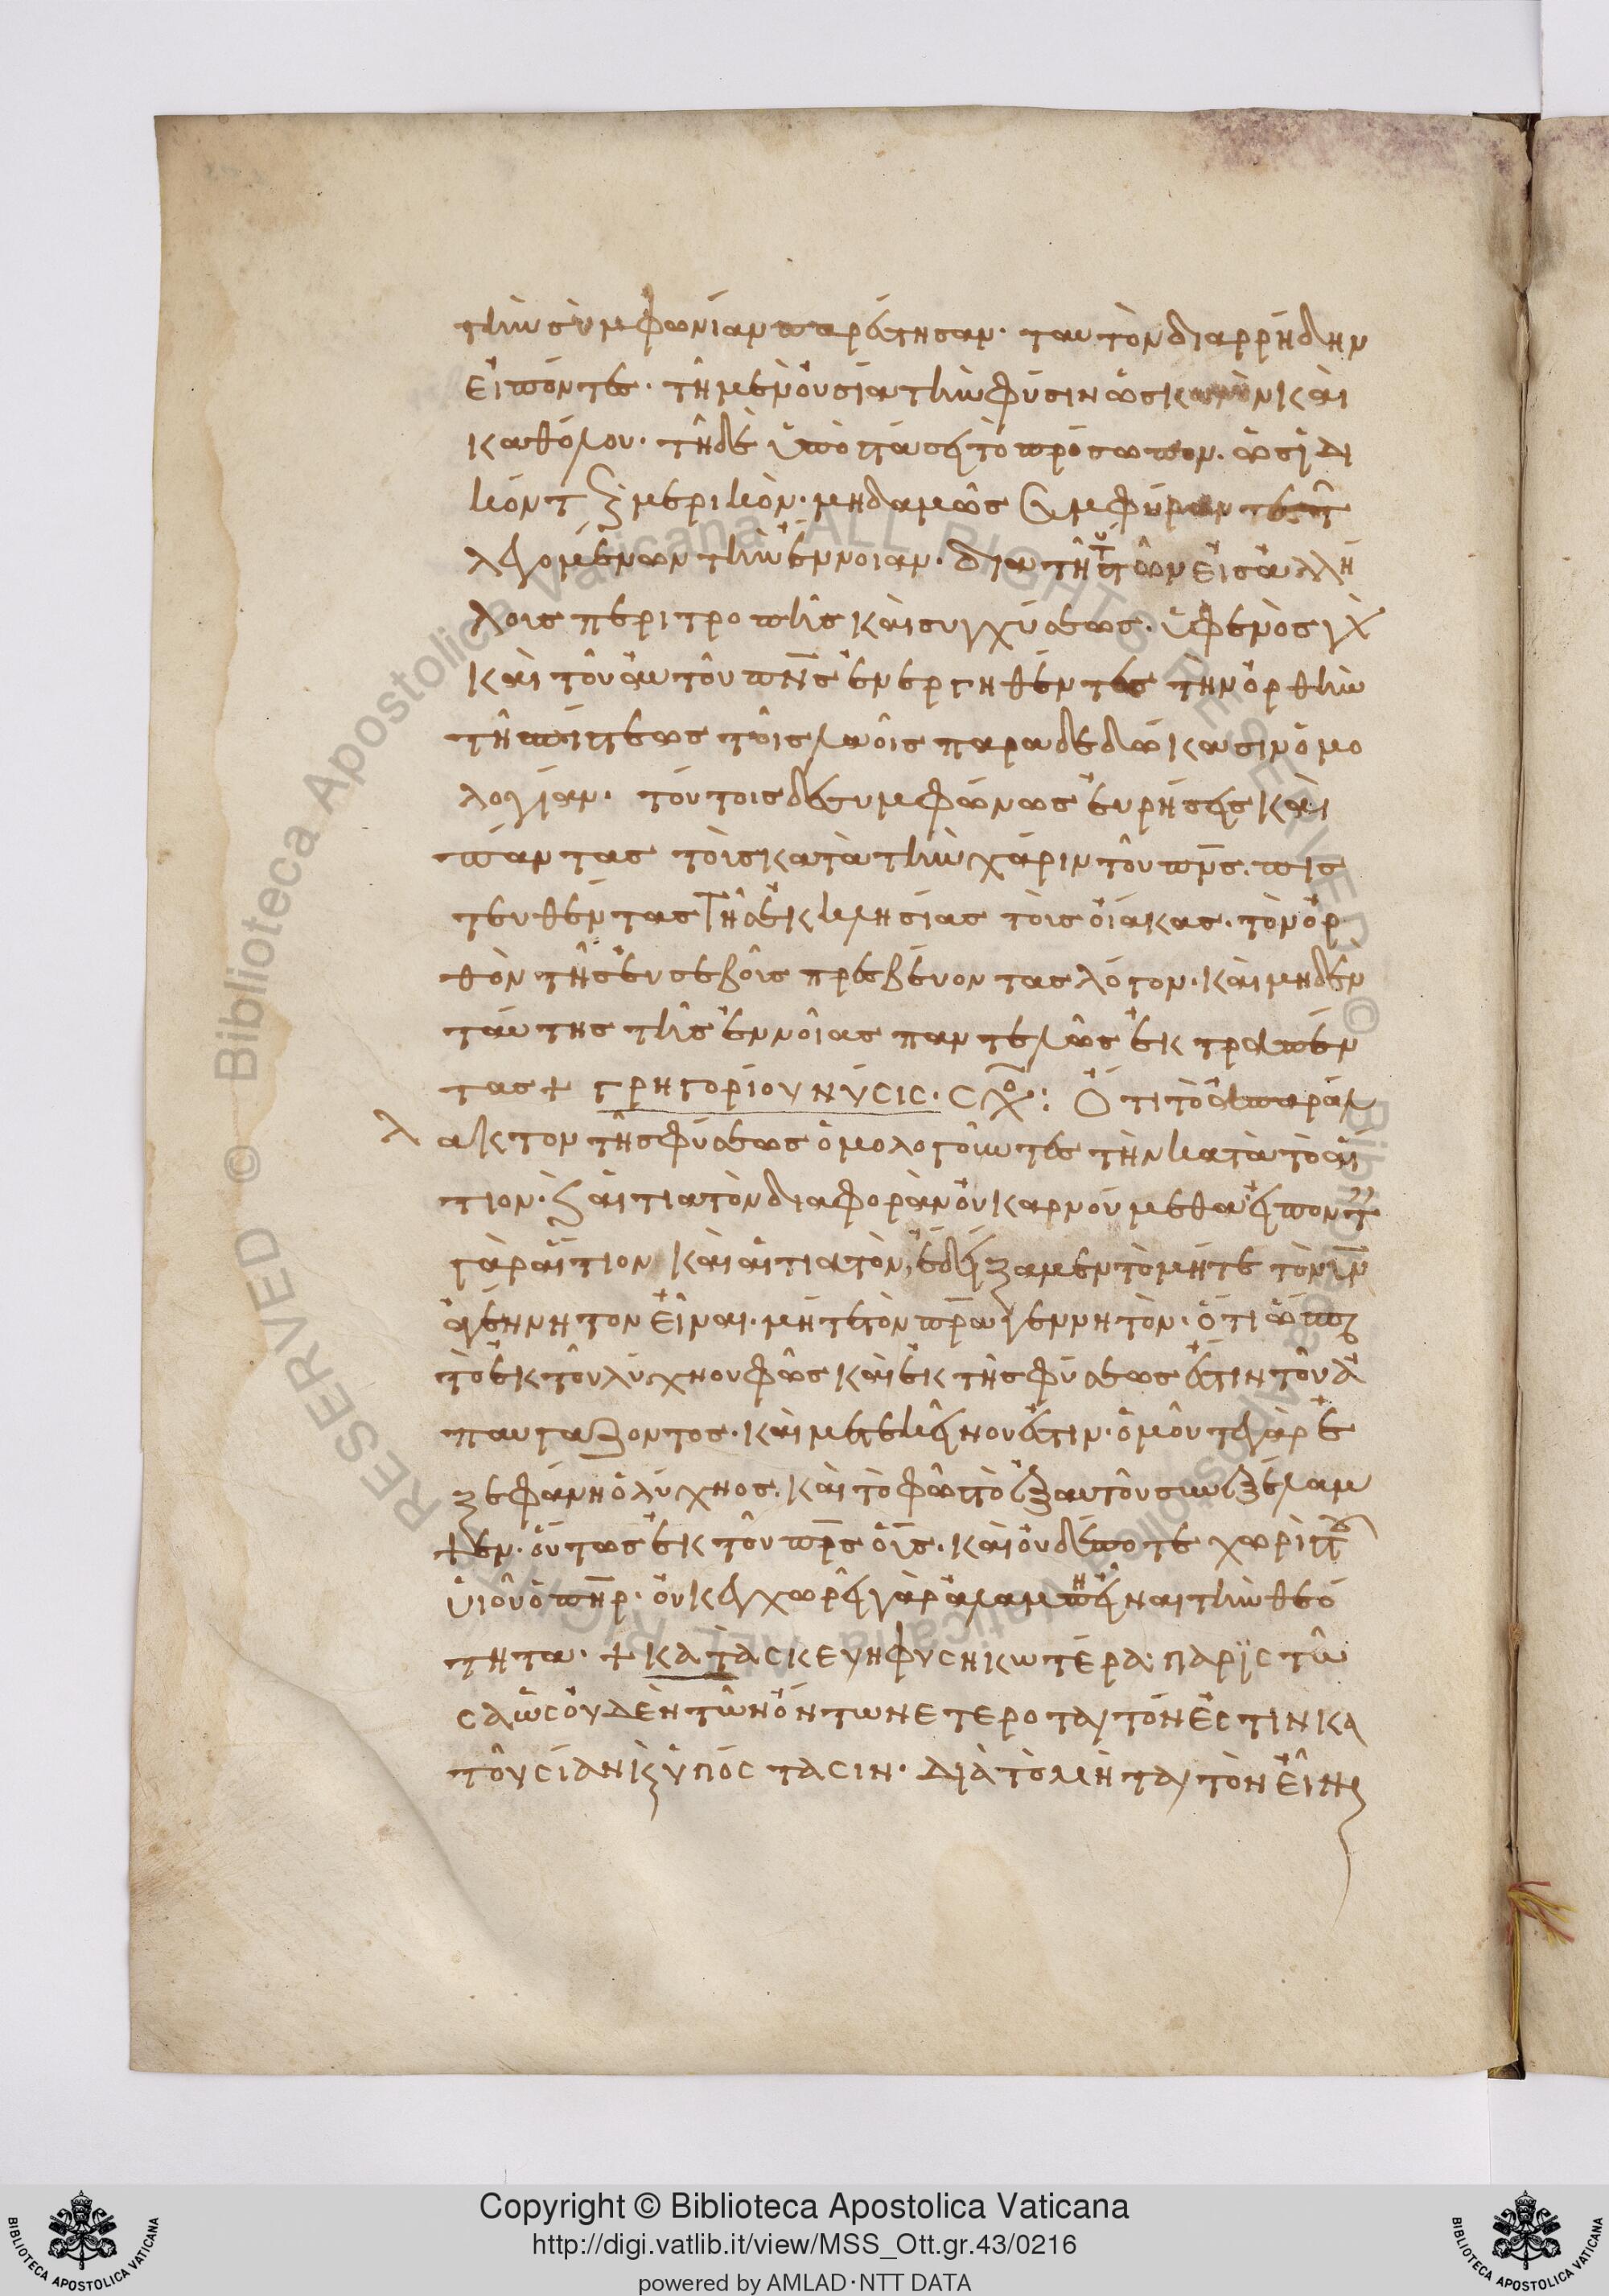 τὴν συμφωνίαν παρέστησαν· ταυτὸν διαρρήδην
εἰπόντες· τῆ μὲν οὐσία τὴν φύσιν ὡς κοινὸν καὶ
καθόλου· τῆ δὲ ὑποστάσει τὸ πρόσωπον· ὡς ἰδι
κόν τ ϗ μερικόν· μηδαμῶς συμφύραντες τ
λεγομένων τὴν ἔννοιαν· δια τῆ τούτων εἰς ἀλλή
λοις περιτροπῆς καὶ συγχύσεως· ὑφ ενὸς γὰρ
καὶ τοῦ αυτοῦ πνς ἐνεργηθέντες τὴν ὀρθὴν
τῆ πίστεως τοῖς λαοῖς παραδεδώκασιν ὁμο
λογίαν· τούτοις δὲ συμφώνως εὑρήσεις καὶ
πάντας τοῖς κατὰ τὴν χάριν τοῦ πνς· πισ
τευθέντας τῆ ἐκκλησίας τοῖς οἴακας· τὸν ὀρ
θὸν τῆς εὐσεβοῖς πρεσβεύοντας λόγον· καὶ μηδὲν
ταύτης τῆς ἐννοίας παντελῶς ἐκτραπέν
τας + γρηγορίου νύσις· σχο: Ὅτι τὸ ἀπαράλ
λακτον τῆς φύσεως ὁμολογοῦντες τὴν κατὰ τὸ αἴ
τιον· ϗ αἰτιατὸν διαφορὰν οὐκ αρνούμεθα·
γὰρ αἴτιον καὶ αἰτιατὸν, ἐδείξαμεν τὸ μήτε τὸν υν
ἀγέννητον εἶναι· μήτε τὸν πρα γεννητόν· ὅτι ὥσπερ
τὸ ἐκ τοῦ λύχνου φῶς καὶ ἐκ τῆς φύσεως ἐστὶν τοῦ ἀ
παυγάζοντος· καὶ μετ εκεῖνου ἐστιν· ὁμοῦ τε γὰρ ἐ
ξεφάνη ὁ λύχνος· καὶ τὸ φῶς τὸ ἐξ αυτοῦ συνεξέλαμ
ψεν· οὕτως ἐκ τοῦ πρς ὁ υς· καὶ οὐδέποτε χωρὶς τοῦ
ὑιοῦ ὁ πηρ· οὐκ ἐγχωρεῖ γὰρ ἀλαμπῆ εἶναι τὴν θεό
τητα· + κατασκευη φυσηκωτέρα· παρϊστῶ
σα ὡς οὐδὲν τῶν ὄντων ετερο ταυτόν ἐστιν κα
τ οὐσίαν ϗ ὑπόστασιν· διὰ τὸ μὴ ταυτὸν εἶναι
Copyright © Biblioteca Apostolica Vaticana
http://digi.vatlib.it/view/MSS_Ott.gr.43/0216
powered by AMLAD·NTT DATA